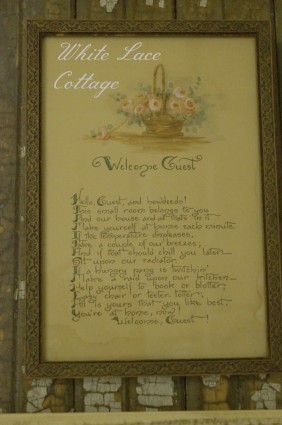 White Lace
Cottage
Welcome Guest
Hello, Guest, and howdeedo!
This small room belongs to you
And our house and all that's in it
Make yourself at home each minute
If the temperature displeases,
Take a couple of our breezes;
And if that should chill you later—
Sit upon our radiator.
If a hungry pang is twitchin'
Make a raid upon our kitchen—
Help yourself to book or blotter,
Easy chair or teeter totter;
All is yours that you like best,
You're at home, now!
Welcome, Guest—!